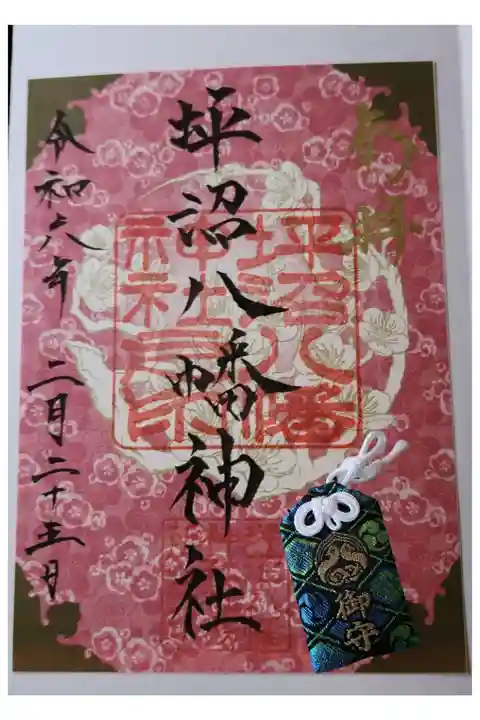 奉拝
坪沼八幡神社
令和六年 二月二十五日
坪沼八幡
神社之印
御守